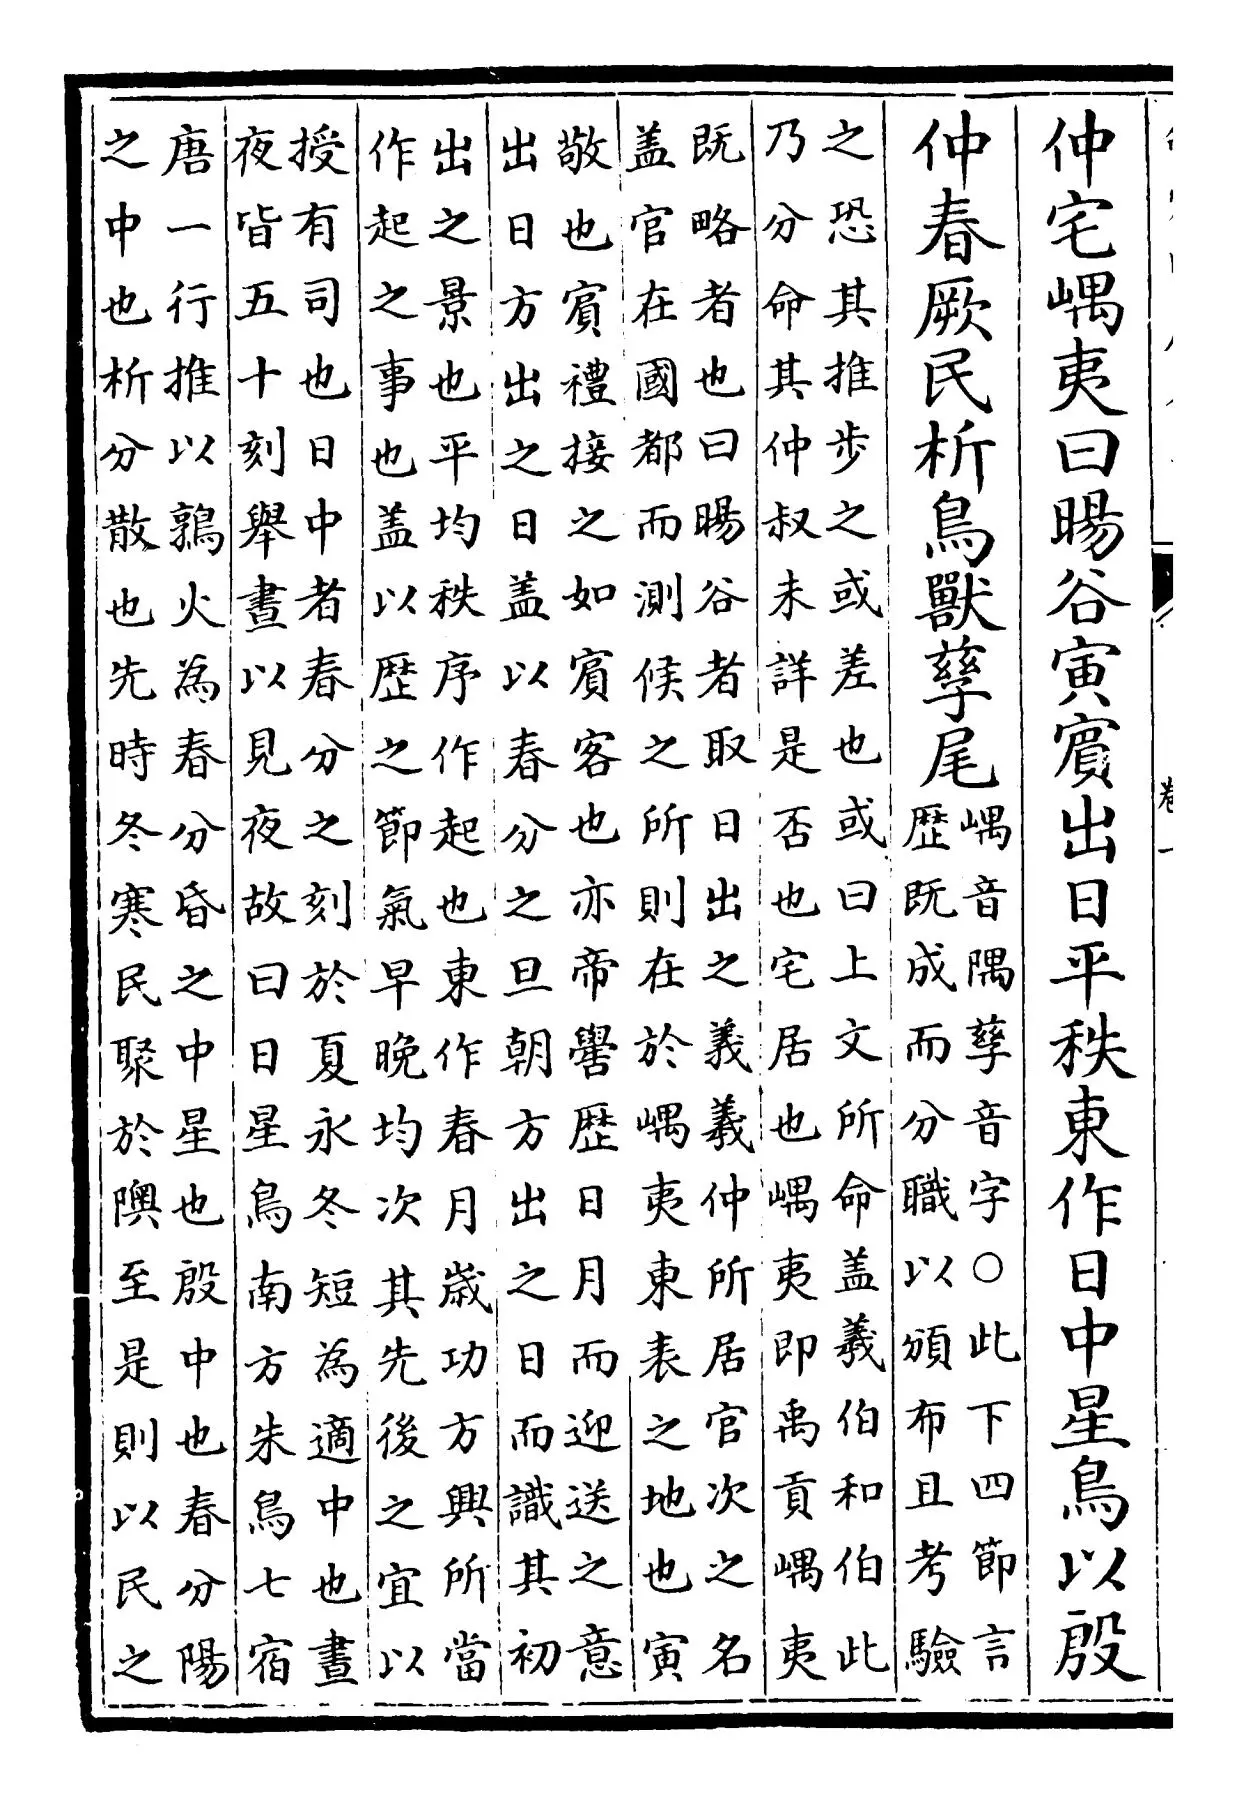 仲宅嵎夷曰暘谷寅賓出日平秩東作日中星鳥以殷
仲春厥民析鳥獸孳尾
嵎音隅孳音字○此下四節言
歴既成而分職以頒布且考驗
之恐其推步之或差也或曰上文所命盖羲伯和伯此
乃分命其仲叔未詳是否也宅居也嵎夷即禹貢嵎夷
既略者也曰暘谷者取日出之義羲仲所居官次之名
盖官在國都而測候之所則在於嵎夷東表之地也寅
敬也賓禮接之如賓客也亦帝嚳歴日月而迎送之意
出日方出之日盖以春分之旦朝方出之日而識其初
出之景也平均秩序作起也東作春月歳功方興所當
作起之事也盖以歴之節氣早晚均次其先後之宜以
授有司也日中者春分之刻於夏永冬短為適中也晝
夜皆五十刻舉晝以見夜故曰日星鳥南方朱鳥七宿
唐一行推以鶉火為春分昏之中星也殷中也春分陽
之中也析分散也先時冬寒民聚於隩至是則以民之
卷一